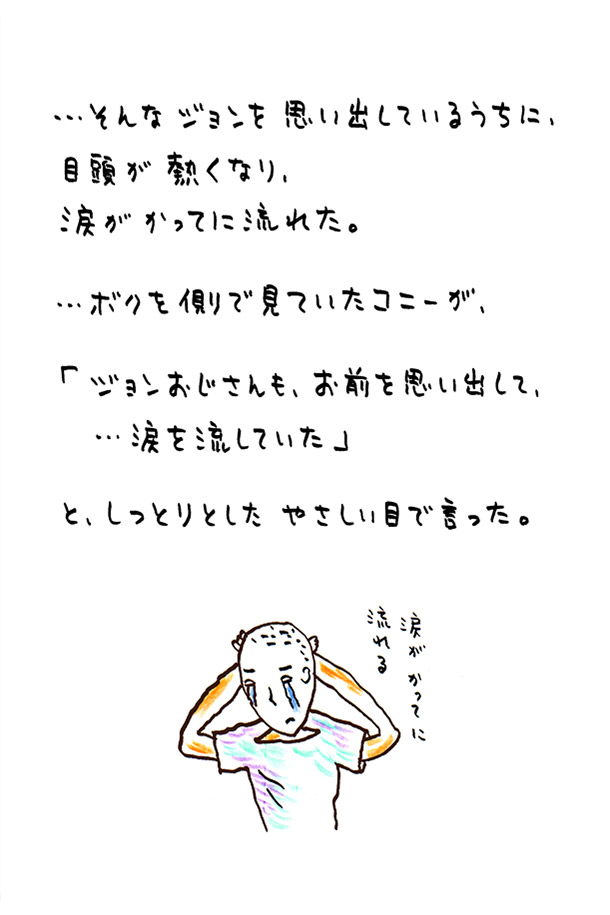 …そんな ジョンを 思い出しているうちに、
目頭が 熱くなり、
涙が かってに流れた。
…ボクを 側りで見ていたコニーが、
「ジョンおじさんも、お前を思い出して、
…涙を流していた」
と、しっとりとした やさしい目で言った。
涙が かってに
流れる